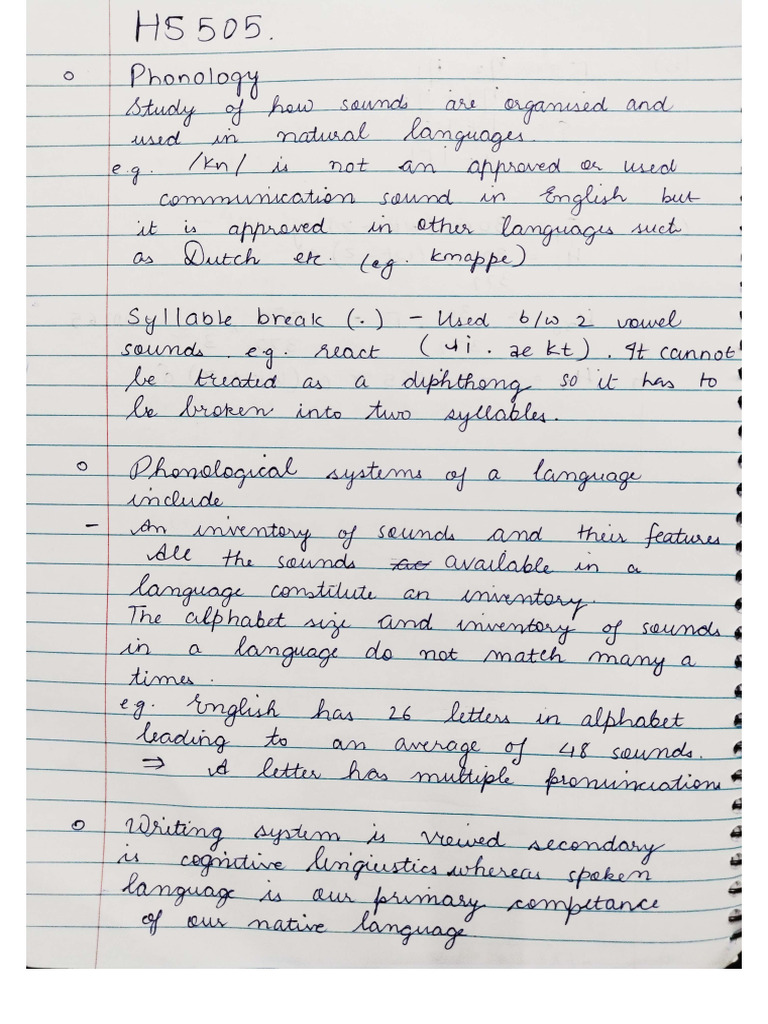 HS 505.
o Phonology
Study of how sounds are organised and
used in natural languages.
e.g. /kn/ is not an approved or used
communication sound in English but
it is approved in other languages such
as Dutch etc. (eg. knappe)
Syllable break (.) - Used b/w 2 vowel
sounds. e.g. react (ɹi . ae kt). It cannot
be treated as a diphthong so it has to
be broken into two syllables.
o Phonological systems of a language
include
- An inventory of sounds and their features
All the sounds ac available in a
language constitute an inventory.
The alphabet size and inventory of sounds
in a language do not match many a
times.
eg. English has 26 letters in alphabet
leading to an average of 48 sounds.
⇒ A letter has multiple pronunciation
o Writing system is viewed secondary
is cognitive lingiustics whereas spoken
language is our primary competance
of our native language